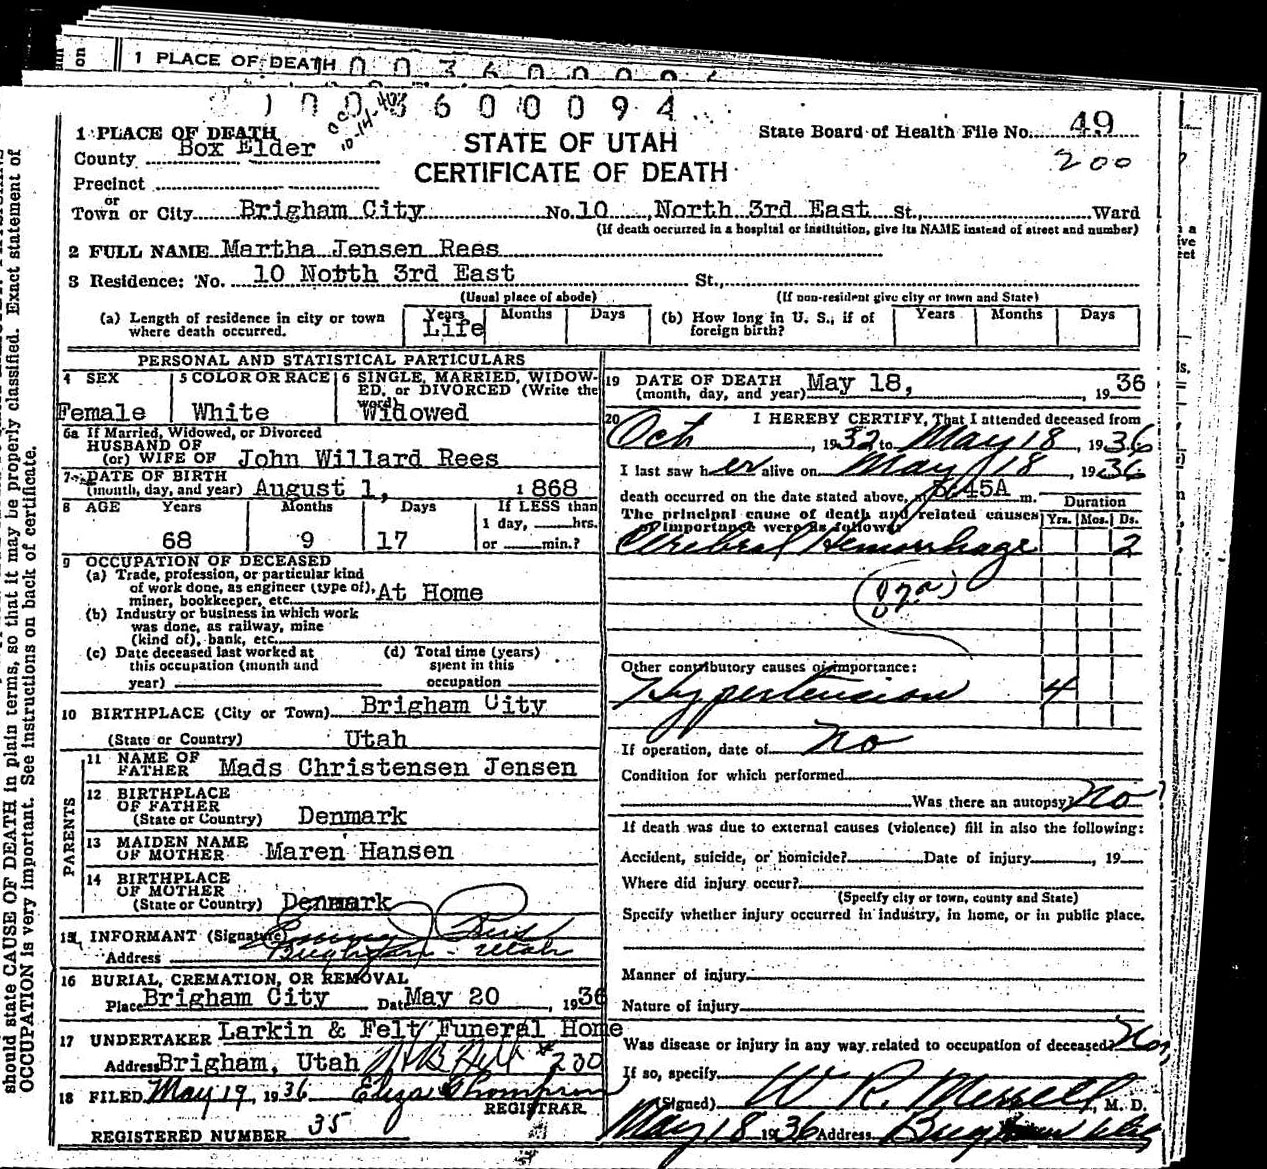 1 PLACE OF DEATH
1 PLACE OF DEATH
County Box Elder
Precinct
or
Town or City Brigham City No. 10 , North 3rd East St., Ward
(If death occurred in a hospital or institution, give its NAME instead of street and number)
STATE OF UTAH
CERTIFICATE OF DEATH
State Board of Health File No. 49
200
2 FULL NAME Martha Jensen Rees
3 Residence: No. 10 North 3rd East St.,
(Usual place of abode) (If non-resident give city or town and State)
(a) Length of residence in city or town where death occurred. Years Life Months Days
(b) How long in U. S., if of foreign birth? Years Months Days
PERSONAL AND STATISTICAL PARTICULARS
4 SEX Female
5 COLOR OR RACE White
6 SINGLE, MARRIED, WIDOWED, or DIVORCED (Write the word) Widowed
6a If Married, Widowed, or Divorced
HUSBAND OF
(or) WIFE OF John Willard Rees
7 DATE OF BIRTH
(month, day, and year) August 1, 1868
8 AGE Years Months Days If LESS than
1 day, hrs.
68 9 17 or min.?
9 OCCUPATION OF DECEASED
(a) Trade, profession, or particular kind
of work done, as engineer (type of),
miner, bookkeeper, etc. At Home
(b) Industry or business in which work
was done, as railway, mine
(kind of), bank, etc.
(c) Date deceased last worked at
this occupation (month and
year)
(d) Total time (years)
spent in this
occupation
10 BIRTHPLACE (City or Town) Brigham City
(State or Country) Utah
PARENTS
11 NAME OF
FATHER Mads Christensen Jensen
12 BIRTHPLACE
OF FATHER
(State or Country) Denmark
13 MAIDEN NAME
OF MOTHER Maren Hansen
14 BIRTHPLACE
OF MOTHER
(State or Country) Denmark
15 INFORMANT (Signature)
Address Brigham - Utah
16 BURIAL, CREMATION, OR REMOVAL
Place Brigham City Date May 20 , 1936
17 UNDERTAKER Larkin & Felt Funeral Home
Address Brigham, Utah #200
18 FILED May 19, 1936 Eliza Thompson
REGISTRAR
REGISTERED NUMBER 35
19 DATE OF DEATH
(month, day, and year) May 18, , 1936
20 I HEREBY CERTIFY, That I attended deceased from
Oct 1932 to May 18 , 1936
I last saw her alive on May 18 , 1936
death occurred on the date stated above, 45A m.
The principal cause of death and related causes
of importance were as follows:
Duration
Yrs. Mos. Ds.
Cerebral Hemorrhage 2
(82a)
Other contributory causes of importance:
Hypertension 4
If operation, date of no
Condition for which performed
Was there an autopsy? no
If death was due to external causes (violence) fill in also the following:
Accident, suicide, or homicide? Date of injury , 19
Where did injury occur?
(Specify city or town, county and State)
Specify whether injury occurred in industry, in home, or in public place.
Manner of injury
Nature of injury
Was disease or injury in any way related to occupation of deceased? No,
If so, specify
(Signed) W R Merrell , M. D.
May 18 1936 Address
should state CAUSE OF DEATH in plain terms, so that it may be properly classified. Exact statement of
OCCUPATION is very important. See instructions on back of certificate.